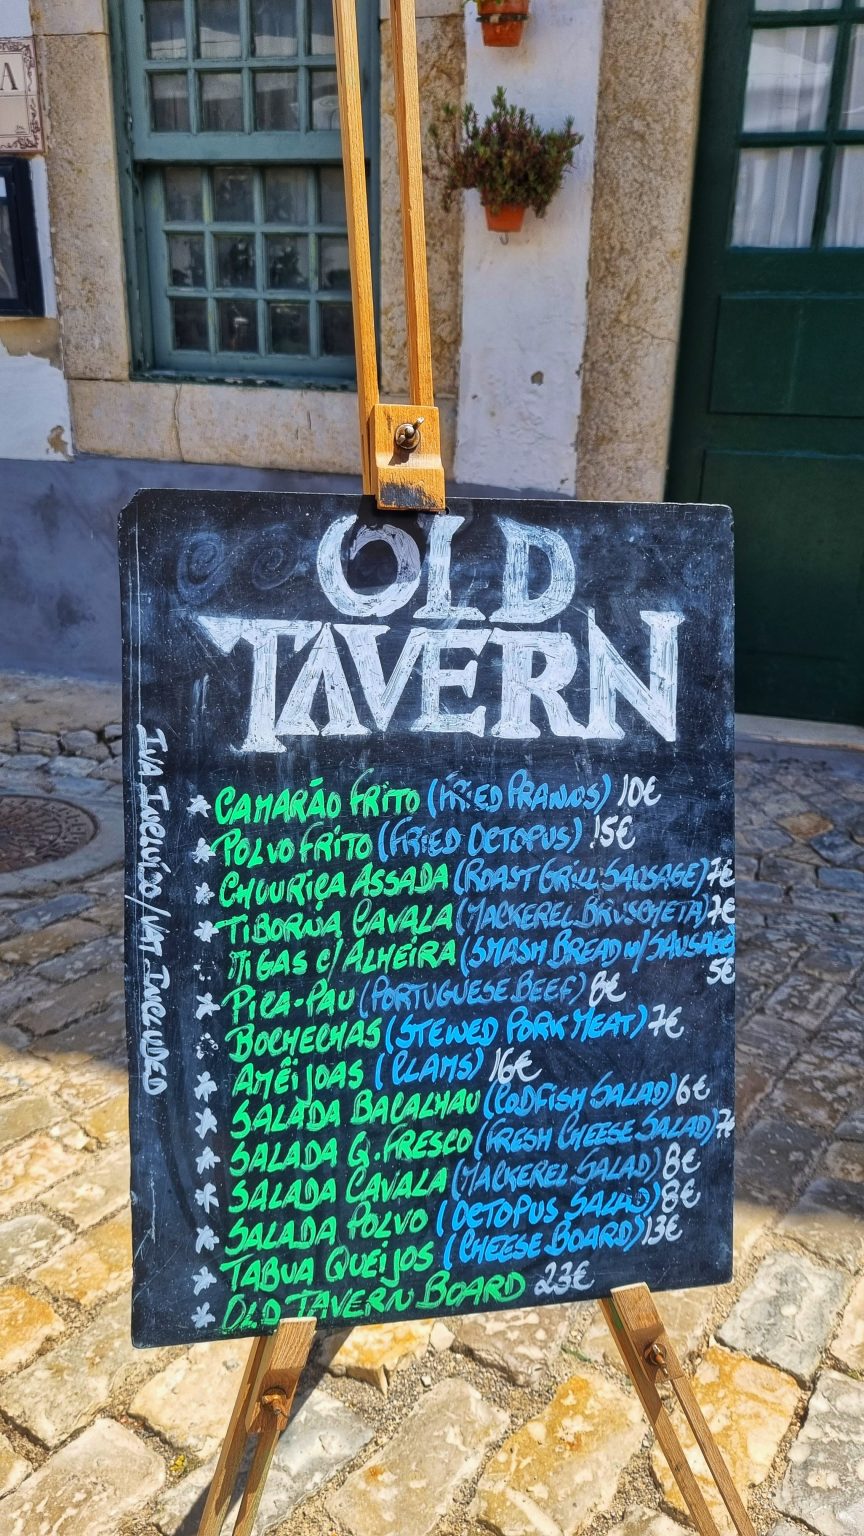 A
OLD
TAVERN
IVA INCLUÍDO/VAT INCLUDED
* CAMARÃO FRITO (FRIED PRAWNS) 10€
* POLVO FRITO (FRIED OCTOPUS) 15€
* CHOURIÇA ASSADA (ROAST GRILL SAUSAGE) 7€
* TIBORNA CAVALA (MACKEREL BRUSCHETA) 7€
MIGAS C/ ALHEIRA (SMASH BREAD W/ SAUSAGE
5€
* PICA-PAU (PORTUGUESE BEEF) 8€
BOCHECHAS (STEWED PORK MEAT) 7€
* AMÊIJOAS (CLAMS) 16€
* SALADA BACALHAU (CODFISH SALAD) 6€
* SALADA Q. FRESCO (FRESH CHEESE SALAD) 7€
* SALADA CAVALA (MACKEREL SALAD) 8€
* SALADA POLVO (OCTOPUS SALAD) 8€
* TABUA QUEIJOS (CHEESE BOARD) 13€
* OLD TAVERN BOARD 23€